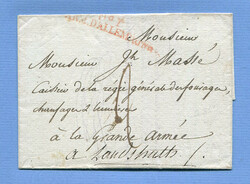 Nº 7
ARM. D'ALLEMAGNE
a Monsieur
Monsieur Jh Massé
Caissier de la régie générale des fourages,
chauffages & lumieres
à la Grande Armée
a Landshuth /.